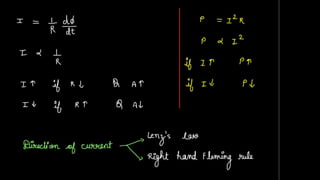 I = 1/R dϕ/dt
I ∝ 1/R
I↑ if R↓ & A↑
I↓ if R↑ & A↓
P = I²R
P ∝ I²
if I↑ P↑
if I↓ P↓
Direction of current → Lenz's law
→ Right hand Fleming rule